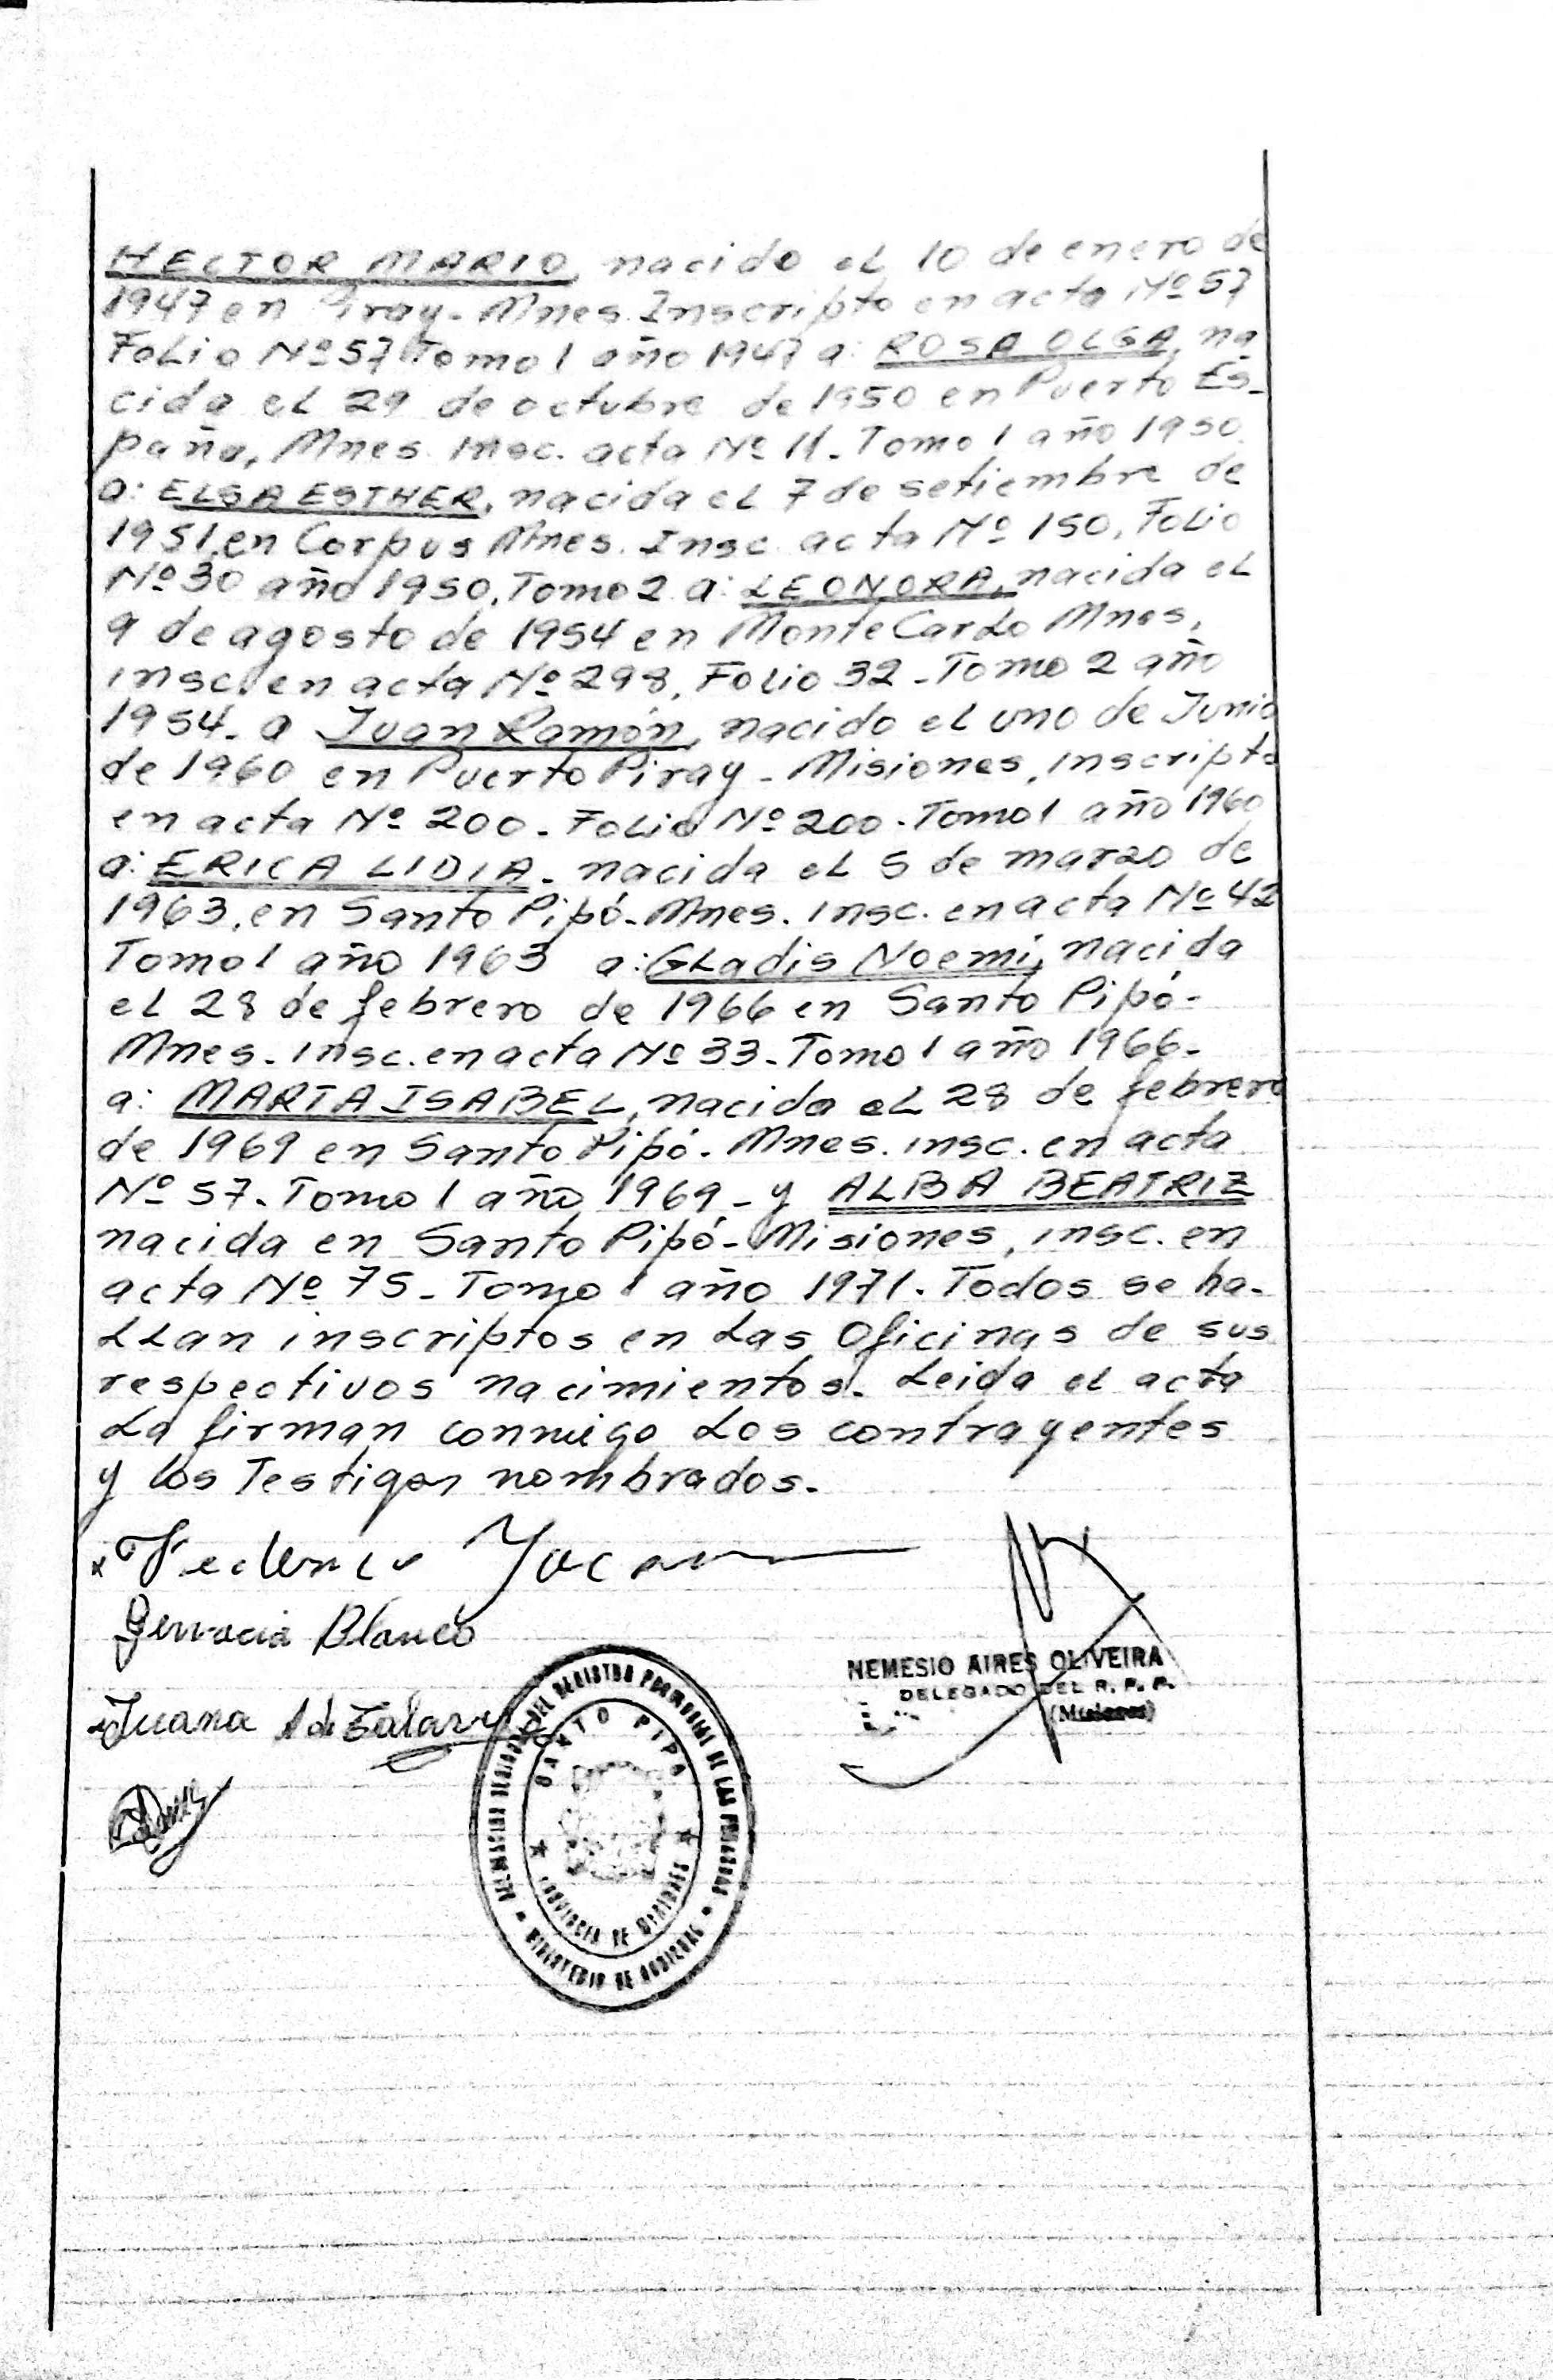 HECTOR MARIO, nacido el 10 de enero de
1947 en Piray - Mnes Inscripto en acta Nº 57
Folio Nº 57 Tomo 1 año 1947 a: ROSA OLGA, na
cida el 29 de octubre de 1950 en Puerto Es-
paña, Mnes. insc. acta Nº 11 - Tomo 1 año 1950.
a: ELSA ESTHER, nacida el 7 de setiembre de
1951 en Corpus Mnes. Insc. acta Nº 150, Folio
Nº 30 año 1950, Tomo 2 a: LEONORA, nacida el
9 de agosto de 1954 en Monte Carlo Mnes,
insc. en acta Nº 298, Folio 32 - Tomo 2 año
1954 - a Juan Ramón, nacido el uno de Junio
de 1960 en Puerto Piray - Misiones, inscripto
en acta Nº 200 - Folio Nº 200 - Tomo 1 año 1960
a: ERICA LIDIA - nacida el 5 de marzo de
1963, en Santo Pipó - Mnes. insc. en acta Nº 42
Tomo 1 año 1963 a: GLadis Noemi, nacida
el 28 de febrero de 1966 en Santo Pipó -
Mnes - insc. en acta Nº 33 - Tomo 1 año 1966 -
a: MARTA ISABEL, nacida el 28 de febrero
de 1969 en Santo Pipó - Mnes. insc. en acta
Nº 57 - Tomo 1 año 1969 - y ALBA BEATRIZ
nacida en Santo Pipó - Misiones, insc. en
acta Nº 75 - Tomo 1 año 1971. Todos se ha-
llan inscriptos en las Oficinas de sus
respectivos nacimientos. Leida el acta
la firman conmigo los contrayentes
y los Testigos nombrados.
x Federico
Gervacia Blanco
Juana A de
NEMESIO AIRES OLIVEIRA
DELEGADO DEL R. P. P.
(Misiones)
DEL REGISTRO PROVINCIAL DE LAS PERSONAS
SANTO PIPO
PROVINCIA DE MISIONES
MINISTERIO DE GOBIERNO